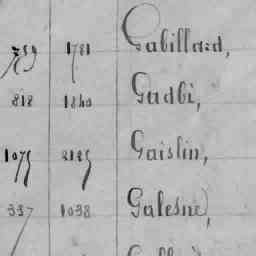 759 1781 Gabillard,
818 1840 Gadbi,
1075 2125 Gaislin,
337 1038 Galesne,